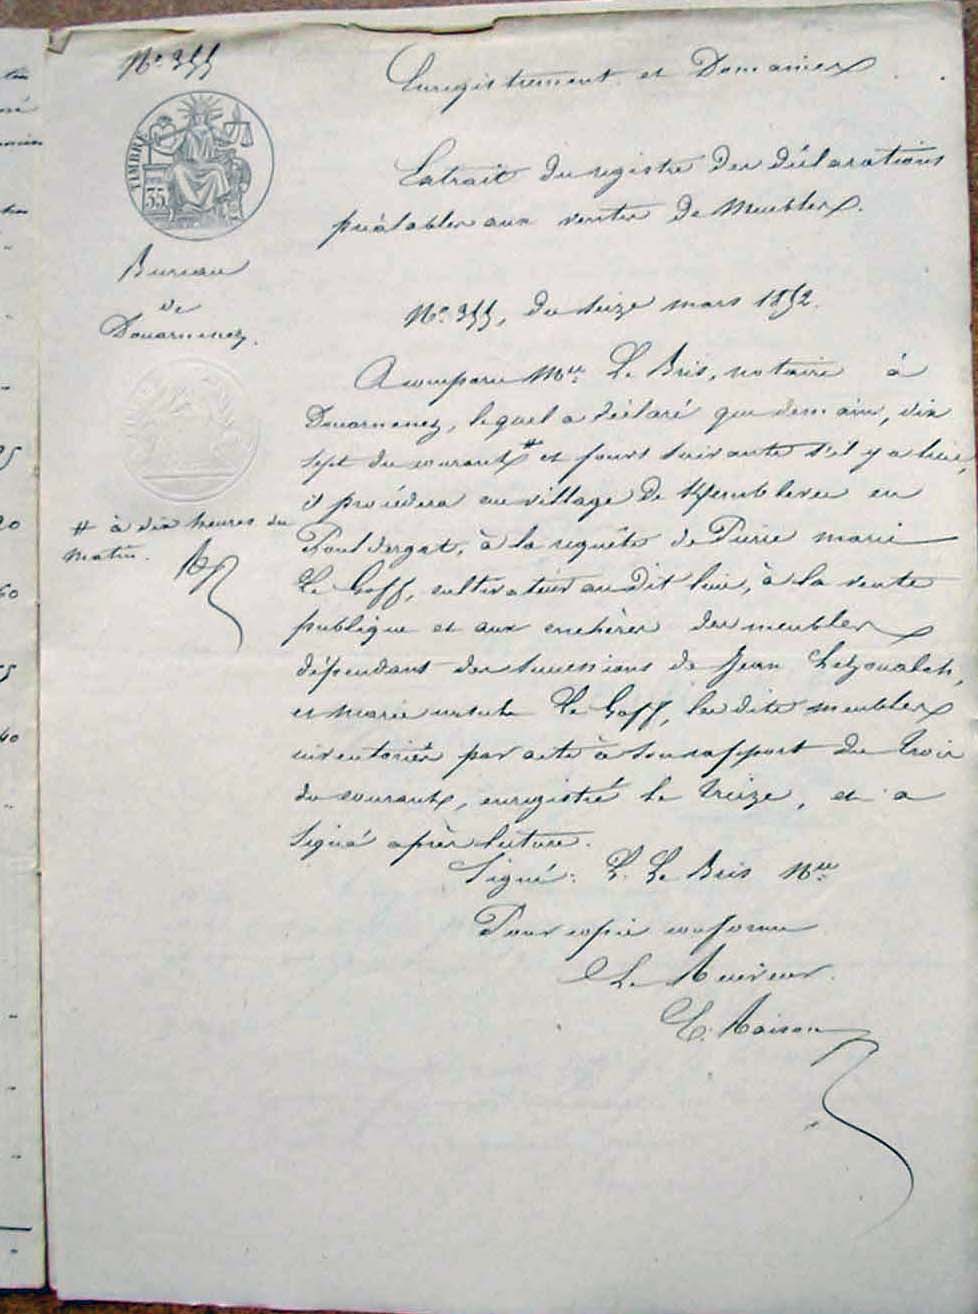 N° 355
Enregistrement et Domaines
TIMBRE
35
Extrait du registre des déclarations
préalables aux ventes de Meubles.
Bureau
de
Douarnenez.
N° 355, du seize mars 1852.
A comparu Mtre Le Bris, notaire à
Douarnenez, lequel a déclaré que demain, dix
sept du courant # et jours suivants s'il y a lieu,
il procédera au village de en
Pouldergat, à la requête de Pierre marie
Le Goff, cultivateur au dit lieu, à la vente
publique et aux enchères des meubles
dépendant des successions de Jean Le Goualch,
et Marie ursule Le Goff, les dits meubles
inventoriés par acte à son rapport du trois
du courant, enregistré le treize, et a
signé après lecture.
# à dix heures du
matin.
Signé: L. Le Bris Nre
Pour copie conforme
Le Receveur.